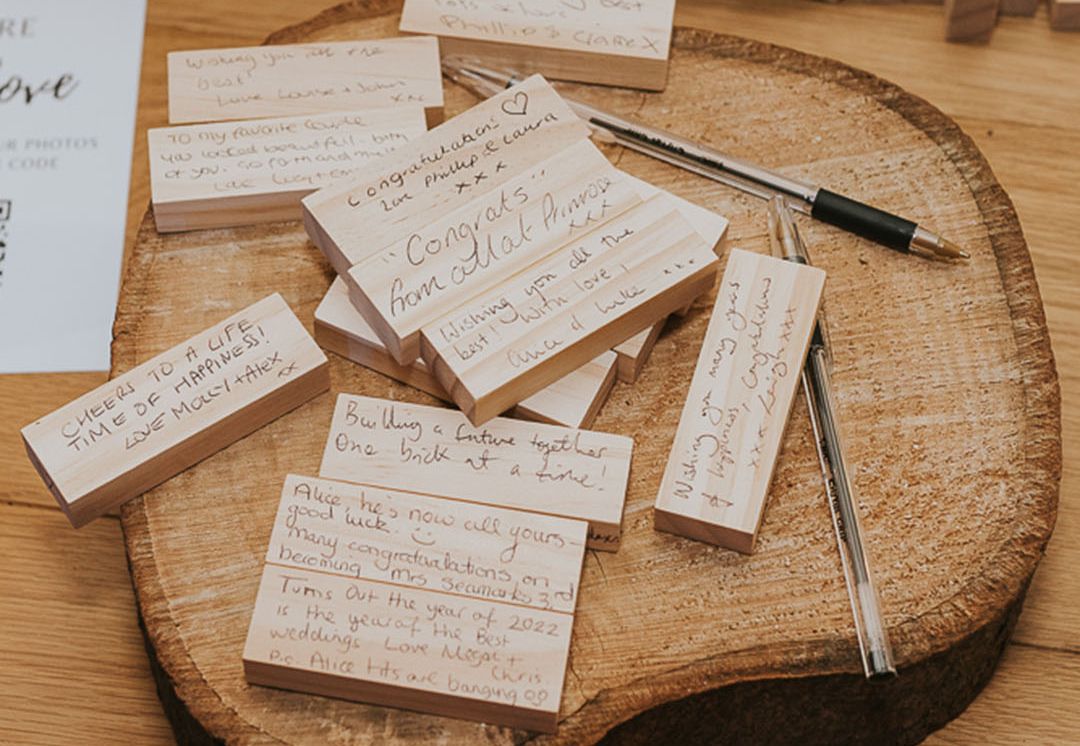 RE
ove
UR PHOTOS
CODE
best
Phillip & Clare X
Wishing you all the
best!
Love Louise + John
xxx
To my favorite couple
you looked beautiful - both
of you. so
Love Lucy +
Congratulations! ♡
love Phillip & Laura
x x x
"Congrats"
from all at Primrose
xxx
Wishing you all the
best! With love!
xxx
Ana & Luke
CHEERS TO A LIFE
TIME OF HAPPINESS!
LOVE MOLLY + Alex
xx
Wishing you many years
of happiness, Congratulations
xxx Leigh xxxx
Building a future together
One brick at a time!
Alice, he's now all yours -
good luck. :)
Many congratulations on
becoming Mrs Seamarks 3rd
Turns out the year of 2022
is the year of the Best
weddings Love Megan +
Chris
p.s. Alice tits are banging